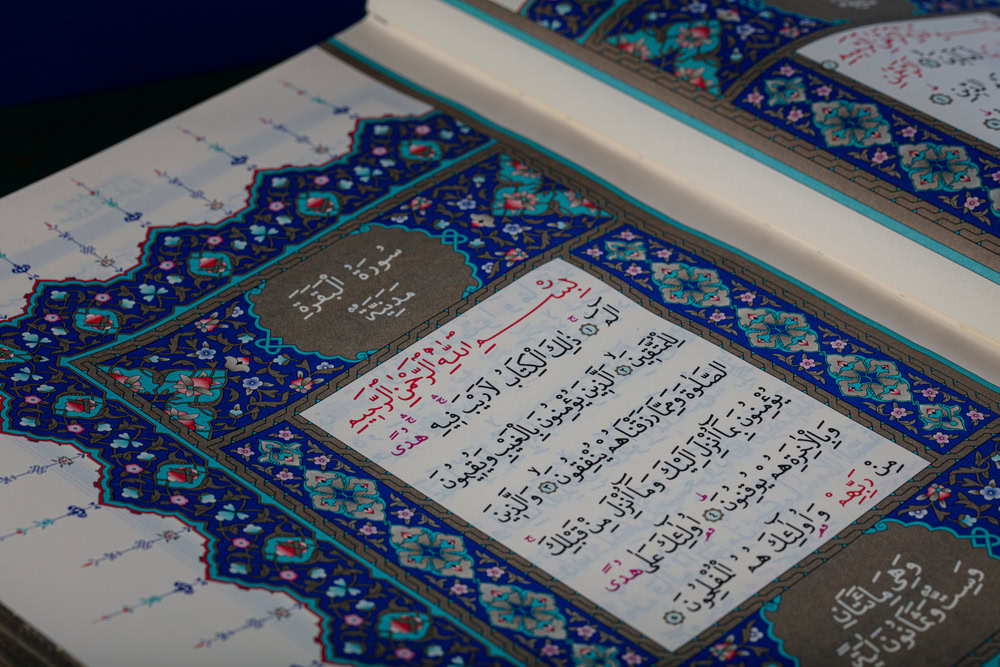 سُورَةُ الْبَقَرَةِ
مَدَنِيَّةٌ
بِسْمِ اللّٰهِ الرَّحْمٰنِ الرَّحِيمِ
الٓمٓ ﴿١﴾ ذٰلِكَ الْكِتَابُ لَا رَيْبَ فِيهِ هُدًى
لِلْمُتَّقِينَ ﴿٢﴾ اَلَّذِينَ يُؤْمِنُونَ بِالْغَيْبِ وَيُقِيمُونَ
الصَّلٰوةَ وَمِمَّا رَزَقْنَاهُمْ يُنْفِقُونَ ﴿٣﴾ وَالَّذِينَ
يُؤْمِنُونَ بِمَا اُنْزِلَ اِلَيْكَ وَمَا اُنْزِلَ مِنْ قَبْلِكَ
وَبِالْاٰخِرَةِ هُمْ يُوقِنُونَ ﴿٤﴾ اُولٰئِكَ عَلٰى هُدًى
مِنْ رَبِّهِمْ وَاُولٰئِكَ هُمُ الْمُفْلِحُونَ ﴿٥﴾
وَهِيَ مَائَتَانِ
وَسِتٌّ وَثَمَانُونَ اٰيَةً